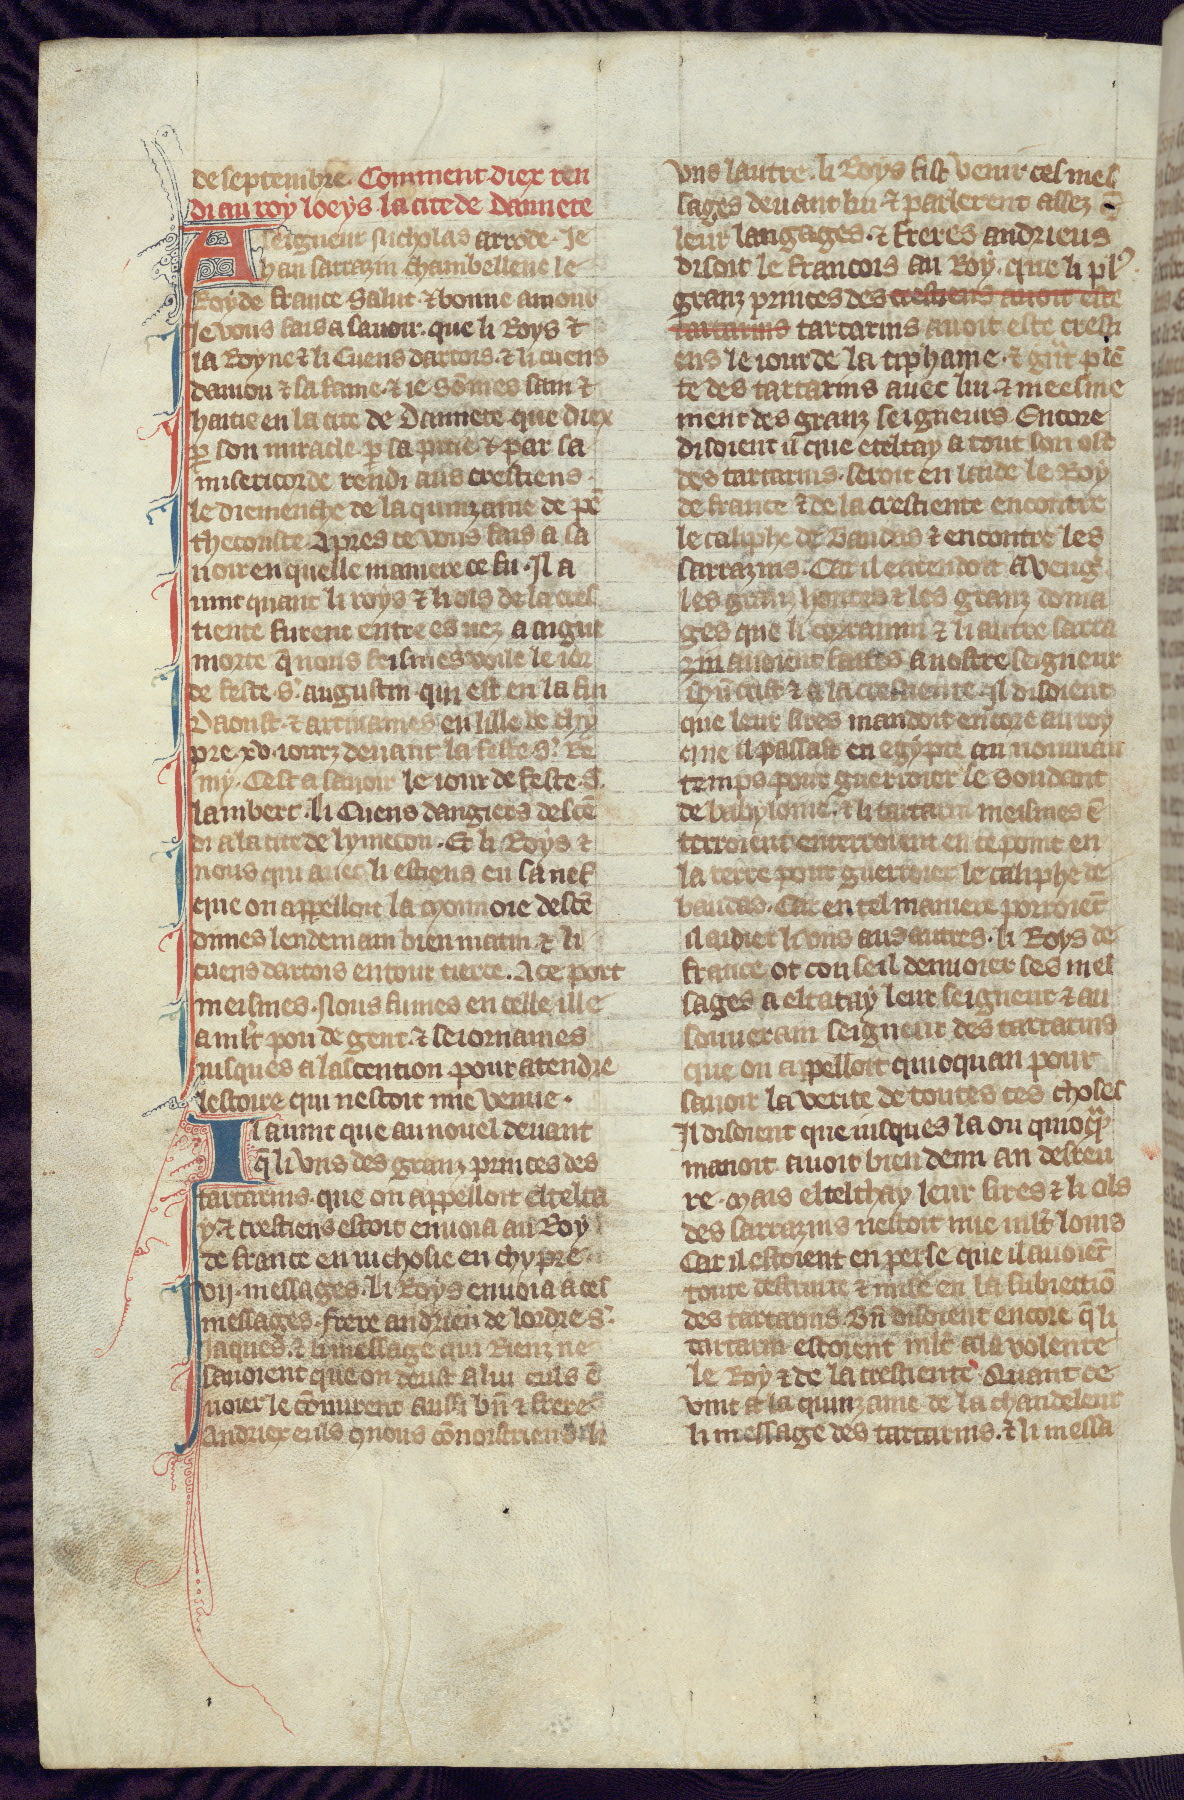 de septembre. Comment diex ren
di au roy loeys la cite de Damiete
A seigneur nicholas arrode. Je
han sarrazin chambellenc le
Roy de france Salut ⁊ bonne amour
Je vous fais a sauoir. que li Roys ⁊
la Royne ⁊ li Cuens dartois. ⁊ li cuens
daniou ⁊ sa fame. ⁊ ie sōmes sain ⁊
haitie en la cite de Damiete que diex
ꝑ son miracle. ꝑ sa pitie. ⁊ par sa
misericorde rendi aus crestiens.
le diemenche de la quinzaine de pē
thecouste. Apres ce vous fais a sa
uoir en quelle maniere ce fu. Il a
uint quant li roys ⁊ li os de la cres
tiente furent entre es nez a aigue
morte q̄ nous feismes voile le ior
de feste .s. augustin. qui est en la fin
Daoust. ⁊ arriuames en lille de chy
pre .xv. iourz deuant la feste .s. Re
my. Cest a sauoir le iour de feste .s.
lambert. li Cuens dangiers descē
di a la cite de lymecon. Et li Roys ⁊
nous qui auec li estions en sa nef
que on appelloit la monnoie descē
dimes lendemain bien matin. ⁊ li
cuens dartois entour tierce. A ce port
meismes. Nous fumes en celle ille
a mlt pou de gent. ⁊ seiornames
iusques a lascention. pour atendre
lestoire qui nestoit mie venue.
Il auint que au nouel deuant
q̄ li vns des granz princes des
tartarins. que on appelloit eltelta
y. ⁊ crestiens estoit enuoia au Roy
de france en nicholie en chypre
.vij. messages. li Roys enuoia a ces
messages. frere andrieu de lordre .s.
iaques. ⁊ li message qui Rienz ne
sauoient que on deust a lui euls ē
uoier le cōnurent aussi bn̄ ⁊ frere
Andriex euls q nous cōnoistriens li
vns lautre. li Roys fist venir ces mes
sages deuant lui ⁊ parlerent assez ē
leur langages. ⁊ freres andrieus
disoit le francois au Roy. que li pl᾿
granz princes des crestiens auoit este
tartarins tartarins auoit este cresti
ens le iour de la tiphaine. ⁊ grāt plē
te des tartarins auec lui. ⁊ meesme
ment des granz seigneurs. Encore
disoient il que eteltay a tout son ost
des tartarins. seroit en laide le Roy
de france ⁊ de la crestiente encontre
le caliphe de Baudas ⁊ encontre les
sarrazins. Car il entendoit a veng᾿
les granz hontes ⁊ les granz doma
ges que li coramin ⁊ li autre sarra
zin auoient faites a nostre seigneur
ihū crist ⁊ a la crestiente. Il disoient
que leur sires mandoit encore au roy
que il passast en egypte au nouuiau
temps pour guerroier le soudant
de babylonie. ⁊ li tartarin meismes ē
terroient enterroient en ce point en
la terre pour guerroier le caliphe de
baudas. Car en tel maniere porroiēt
il aidier li vns aus autres. li Roys de
france ot conseil denuoier ses mes
sages a eltatay leur seigneur ⁊ au
souuerain seigneur des tartarins
que on appelloit quioquan pour
sauoir la verite de toutes ces choses
Il disoient que iusques la ou quioq̄
manoit auoit bien demi an desteu
re. Mais eltelthay leur sires ⁊ li ols
des sarrazins nestoit mie mlt loins
Car il estoient en perse que il auoiēt
toute destruite ⁊ mise en la subiectiō
des tartarins. Bn̄ disoient encore q̄ li
tartarin estoient mlt a la volente
le Roy ⁊ de la crestiente. Quant ce
vint a la quinzaine de la chandeleur
li message des tartarins. ⁊ li messa